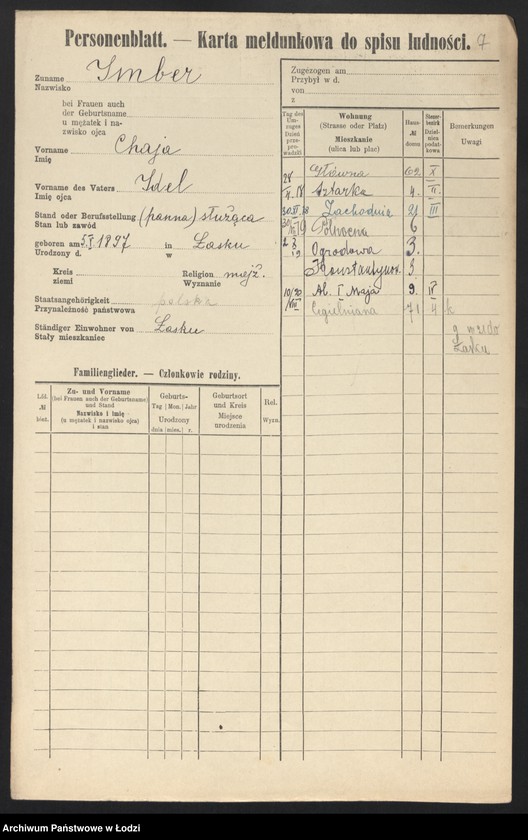 Personenblatt. — Karta meldunkowa do spisu ludności. 7
Zuname
Nazwisko
Imber
bei Frauen auch
der Geburtsname
u mężatek i na-
zwisko ojca
Vorname
Imię
Chaja
Vorname des Vaters
Imię ojca
Idel
Stand oder Berufsstellung
Stan lub zawód
(panna) służąca
geboren am 5/X 1897 in Łasku
Urodzony d. w
Kreis
ziemi
Religion mojż.
Wyznanie
Staatsangehörigkeit
Przynależność państwowa
polska
Ständiger Einwohner von
Stały mieszkaniec
Łasku
Familienglieder. — Członkowie rodziny.
Lfd. № bież.
Zu- und Vorname
(bei Frauen auch der Geburtsname)
und Stand
Nazwisko i imię
(u mężatek i nazwisko ojca)
i stan
Geburts-
Tag | Mon. | Jahr
Urodzony
dnia | mies. | r.
Geburtsort
und Kreis
Miejsce
urodzenia
Rel.
Wyzn.
Zugezogen am
Przybył w d.
von
z
Tag des Um-zuges
Dzień prze-pro-wadzki
Wohnung
(Strasse oder Platz)
Mieszkanie
(ulica lub plac)
Haus-
№
domu
Steuer-bezirk
Dziel-nica podat-kowa
Bemerkungen
Uwagi
Główna 62 X
Sztarka 4. II.
Zachodnia 21 III
Północna 6
Ogrodowa 3.
Konstantynow. 3.
10/VIII 20 Al. I Maja 9. IV
Cegielniana 71 4 k
Łasku
Archiwum Państwowe w Łodzi